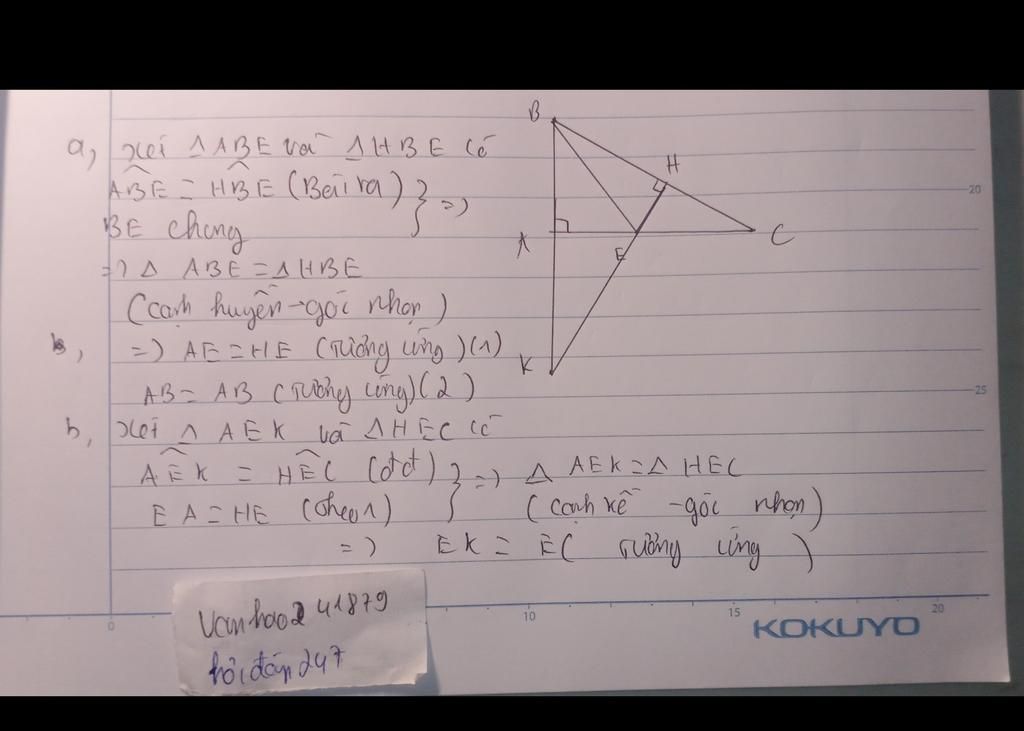 a, xét Δ ABE và Δ HBE có
ABE = HBE (Bài ra) } =)
BE chung
=) Δ ABE = Δ HBE
(cạnh huyền - góc nhọn)
b, =) AE = HE (Tương ứng) (1)
AB = AB (Tương ứng) (2)
b, xét Δ AEK và Δ HEC có
AEK = HEC (đđ) } =) Δ AEK = Δ HEC
EA = HE (theo 1) (cạnh kề - góc nhọn)
=) EK = EC Tương ứng )
B
H
A
E
C
K
20
25
0
10
15
20
KOKUYO
Vanhao2 41879
hỏi đáp 247